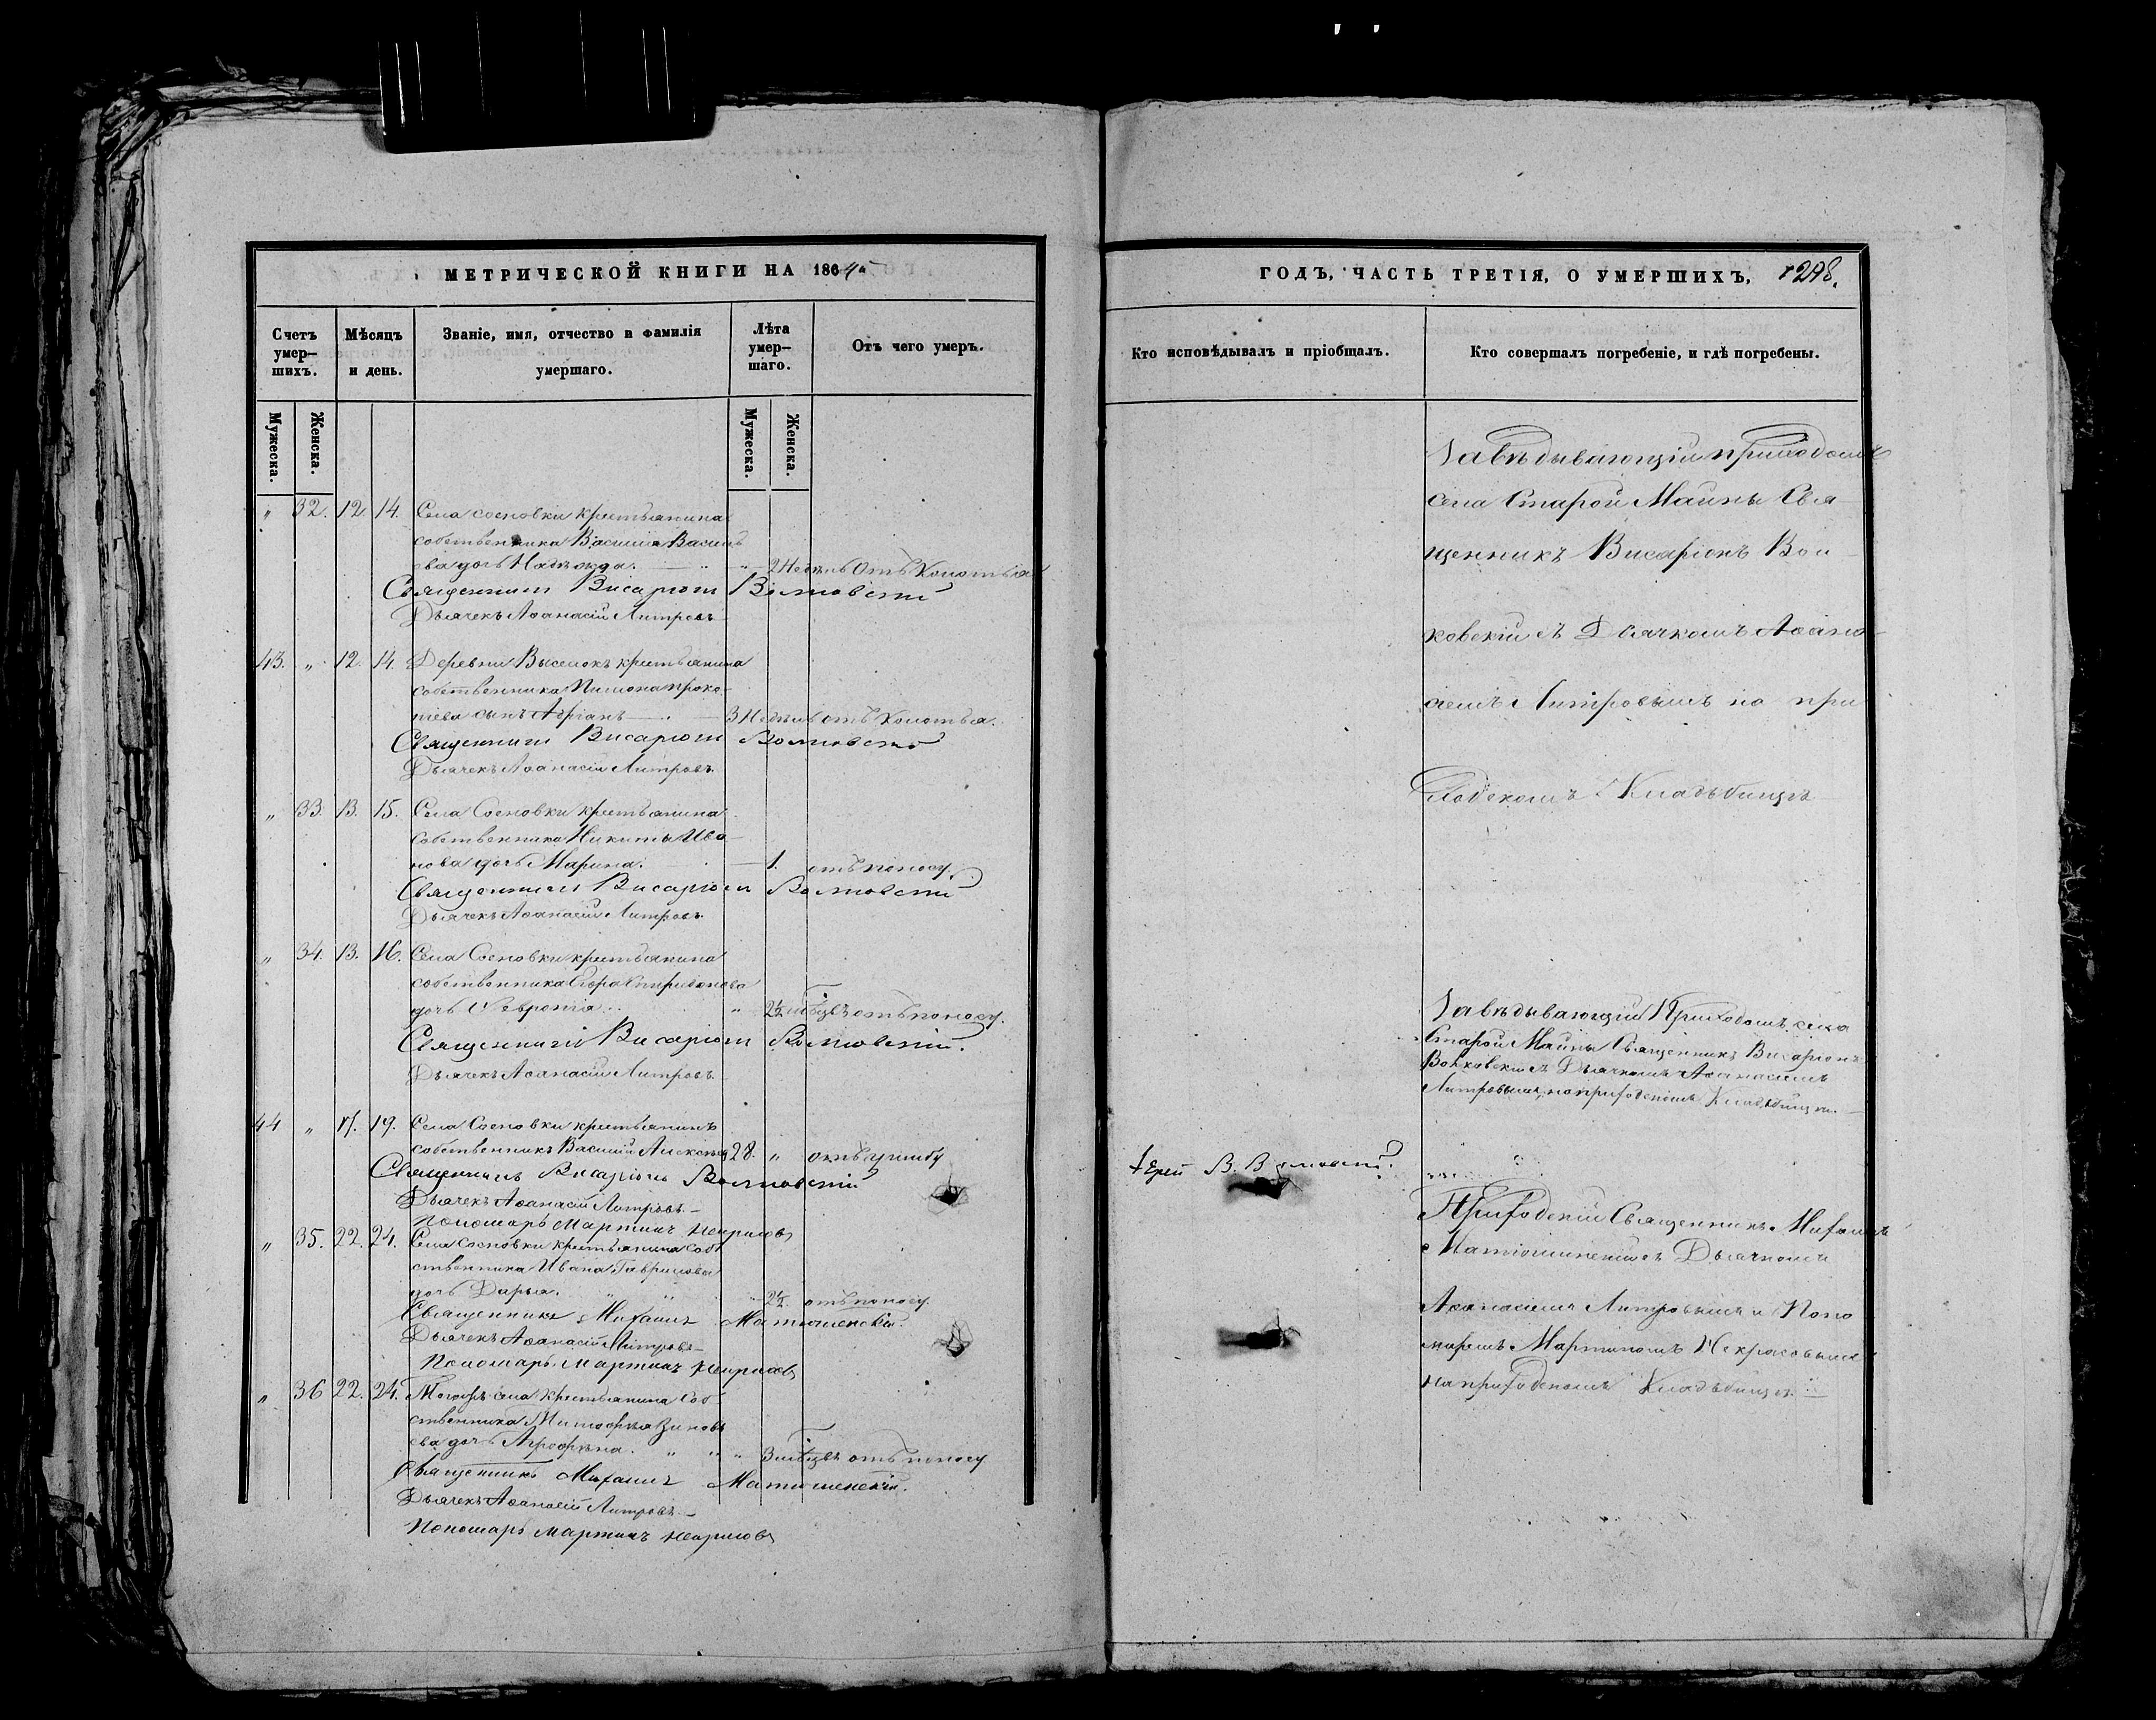 МЕТРИЧЕСКОЙ КНИГИ НА 1864й
Счетъ умер—шихъ.
Мѣсяцъ и день.
Званіе, имя, отчество и фамилія умершаго.
Лѣта умер—шаго.
Отъ чего умеръ.
Мужеска.
Женска.
Мужеска.
Женска.
„ 32. 12. 14. Села Сосновки крестьянина
собственника Василія Василь
ева дочь Надежда. „ 2 Недѣль Отъ Колотья
Священникъ Висаріонъ Волковскій
Дьячекъ Аѳанасій Литровъ
43. „ 12. 14. Деревни Выселокъ крестьянина
собственника Пимона Проко
піева сынъ Адріанъ — 3 Недѣль отъ Колотья.
Священникъ Висаріонъ Волковскій
Дьячекъ Аѳанасій Литровъ
„ 33. 13. 15. Села Сосновки крестьянина
Собственника Никиты Ива
нова дочь Марина. 1. отъ поносу.
Священникъ Висаріонъ Волковскій
Дьячекъ Аѳанасій Литровъ
„ 34. 13. 16. Села Сосновки крестьянина
собственника Егора Спиридонова
дочь Февронія. „ 2½ мѣсяцъ отъ поносу.
Священникъ Висаріонъ Волковскій.
Дьячекъ Аѳанасій Литровъ
44 „ 17. 19. Села Сосновки крестьянинъ
собственникъ Василій Алексѣевъ 28. „ отъ ушибу
Священникъ Висаріонъ Волковскій
Дьячекъ Аѳанасій Литровъ—
Пономарь Мартинъ Некрасовъ
„ 35. 22. 24. Села Сосновки крестьянина Соб
ственника Ивана Гаврилова
дочь Дарья. „ 2½. отъ поносу.
Священникъ Михаилъ Матюшенскій.
Дьячекъ Аѳанасій Литровъ—
Пономарь Мартинъ Некрасовъ
„ 36 22. 24. Тогожъ села крестьянина Соб
ственника Митрофана Зиновь
ева дочь Агрофена. „ „ „ 3 мѣсяцъ отъ поносу
Священникъ Михаилъ Матюшенскій.
Дьячекъ Аѳанасій Литровъ—
Пономарь Мартинъ Некрасовъ
ГОДЪ, ЧАСТЬ ТРЕТІЯ, О УМЕРШИХЪ,
Кто исповѣдывалъ и пріобщалъ.
Кто совершалъ погребеніе, и гдѣ погребены.
Завѣдывающій приходомъ
села Старой Майны Свя
щенникъ Висаріонъ Вол
ковскій съ Дьячкомъ Аѳана
сіемъ Литровымъ на при
ходскомъ Кладбищѣ
Завѣдывающій Приходомъ села
Старой Майны Священникъ Висаріонъ
Волковскій съ Дьячкомъ Аѳанасіемъ
Литровымъ на приходскомъ Кладбищѣ.
Іерей В. Волковскій.
Приходскій Священникъ Михаилъ
Матюшинскій съ Дьячкомъ
Аѳанасіемъ Литровымъ и Поно
маремъ Мартиномъ Некрасовымъ
на приходскомъ Кладбищѣ.